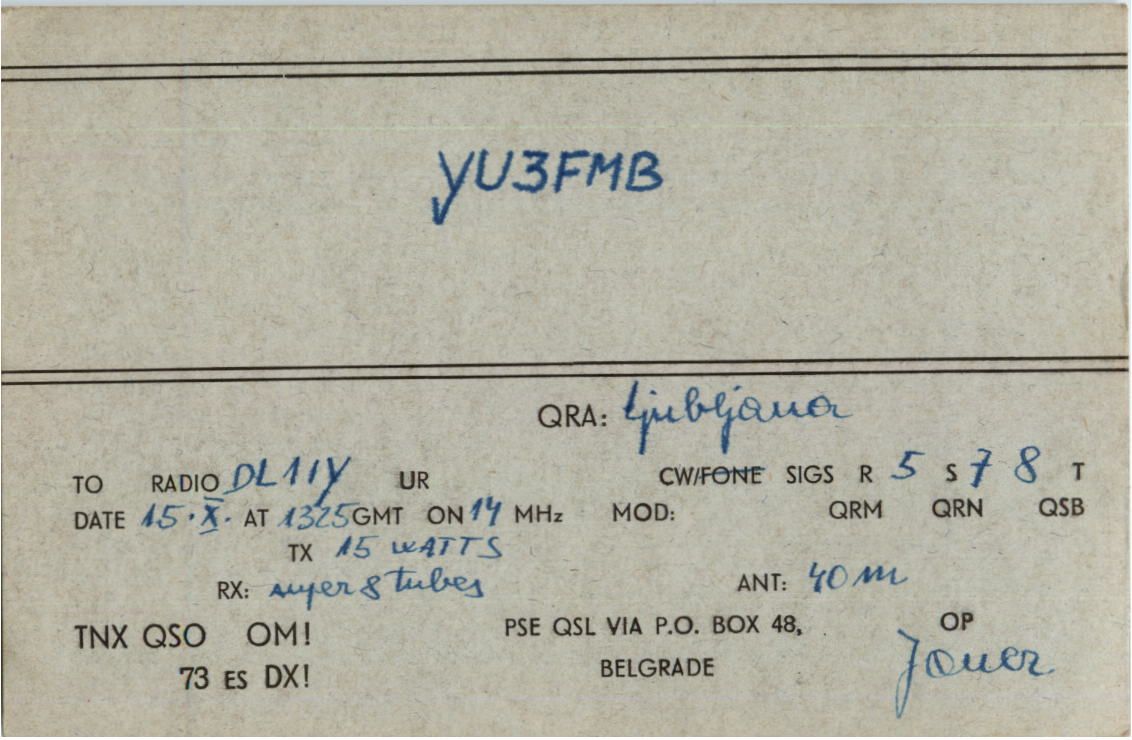 YU3FMB
QRA: Ljubljana
TO RADIO DL1IY UR CW/FONE SIGS R 5 S 7 8 T
DATE 15.X. AT 1325 GMT ON 14 MHz MOD: QRM QRN QSB
TX 15 WATTS
RX: super 8 tubes ANT: 40 m
TNX QSO OM! PSE QSL VIA P.O. BOX 48, OP
73 ES DX! BELGRADE